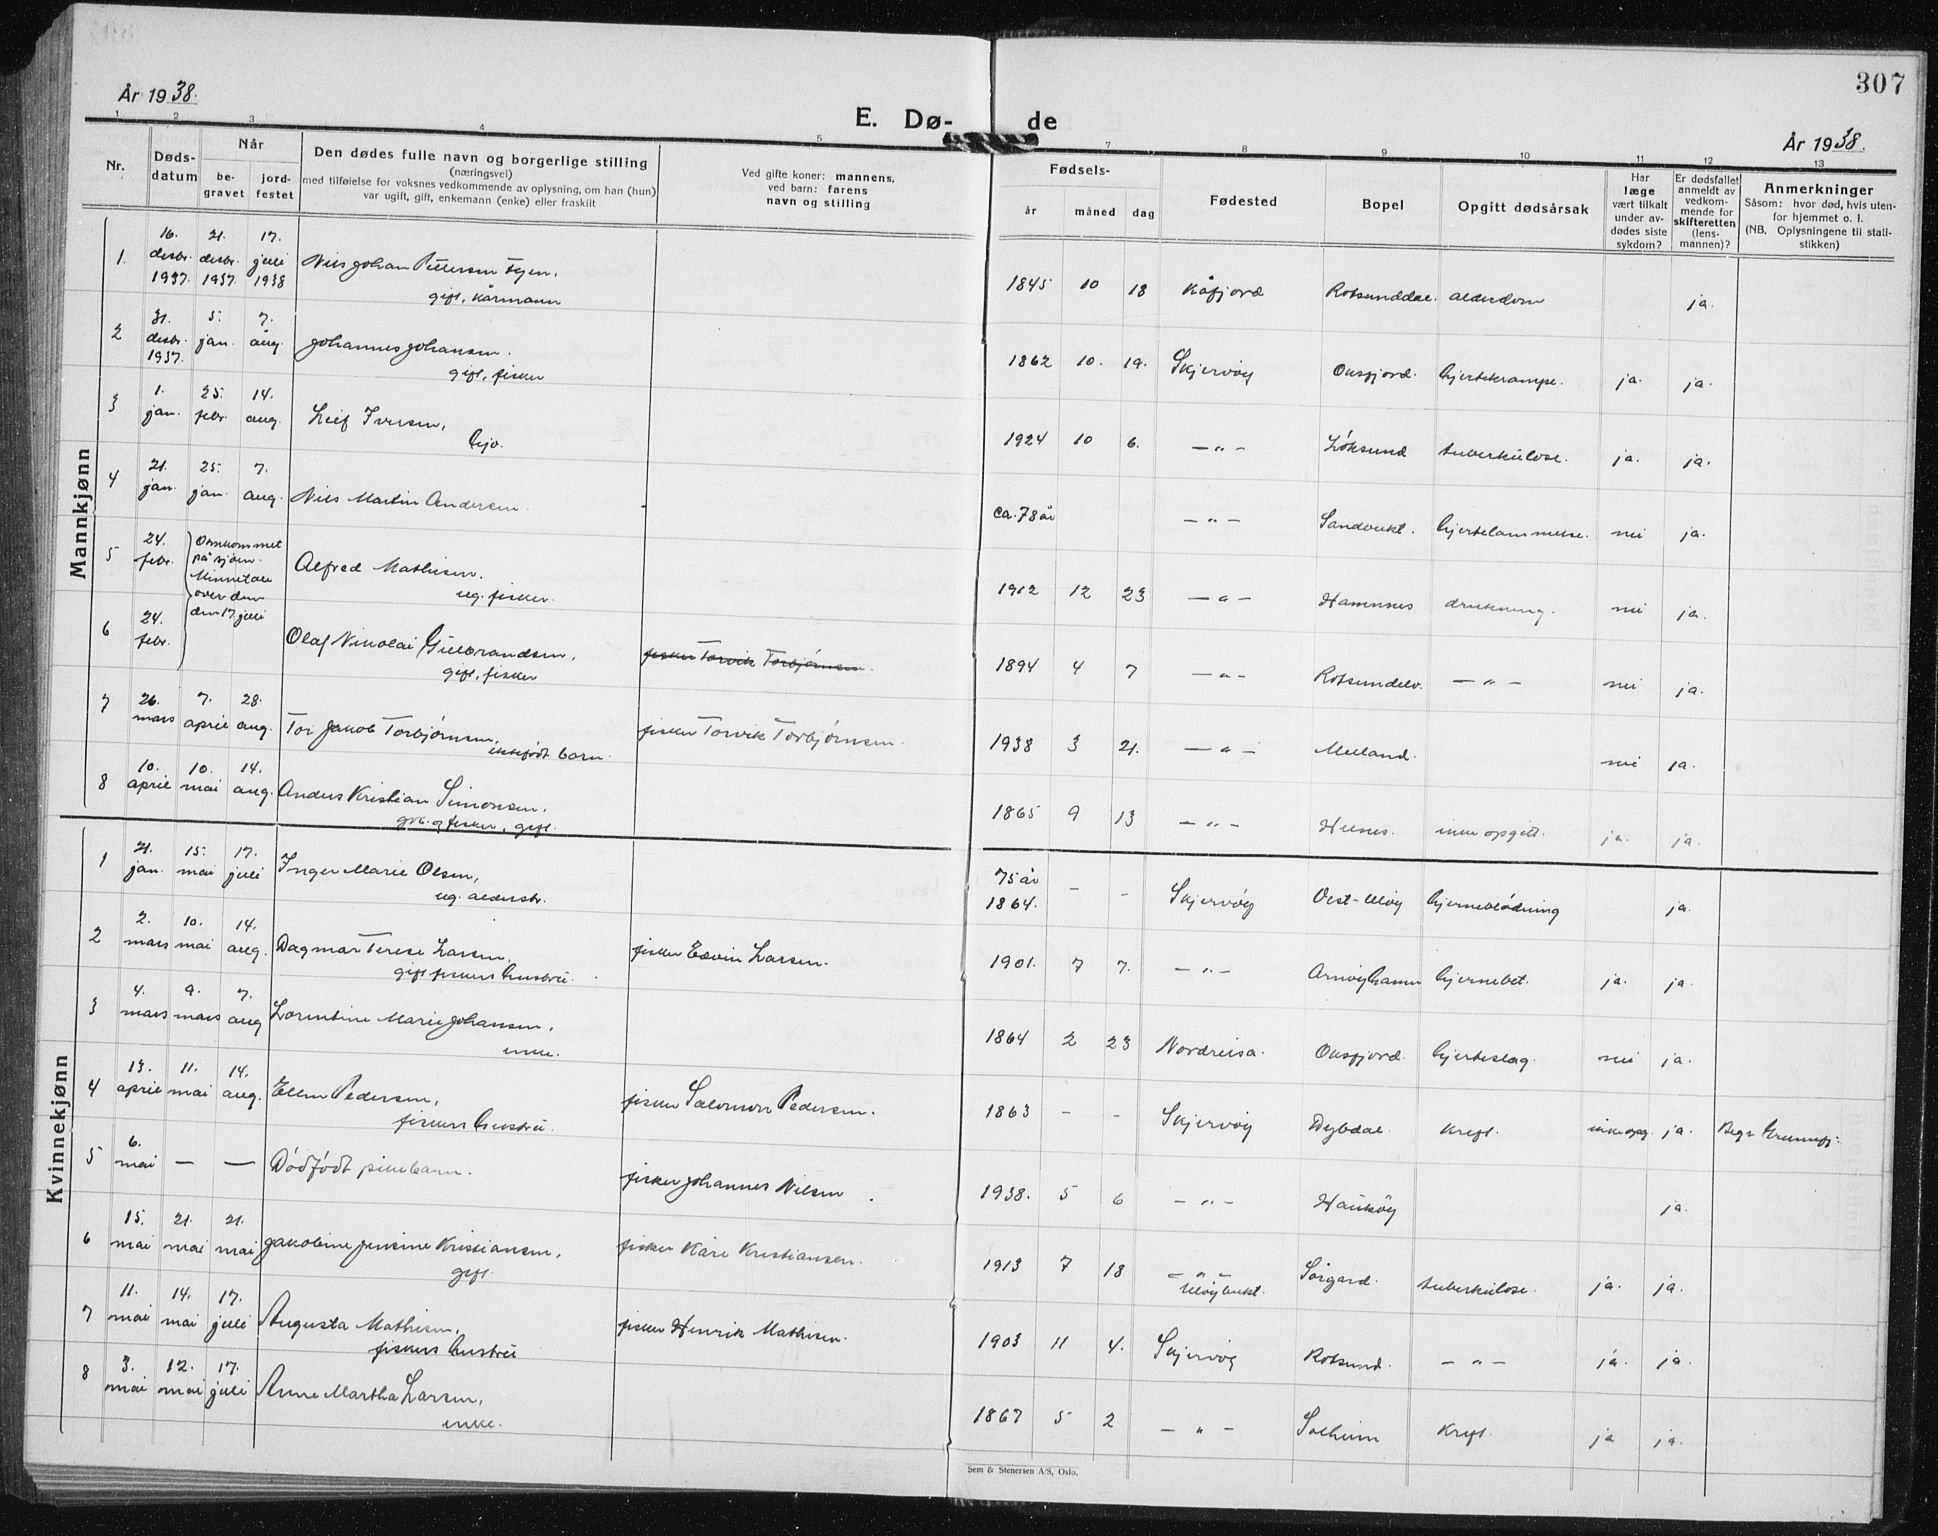 307
År 1938.
E. Dø-
de
År 1938.
1 2 3 4 5 7 8 9 10 11 12 13
Nr.
Døds-
datum
Når
be-
gravet
jord-
festet
Den dødes fulle navn og borgerlige stilling
(næringsvei)
med tilføielse for voksnes vedkommende av oplysning, om han (hun)
var ugift, gift, enkemann (enke) eller fraskilt
Ved gifte koner: mannens,
ved barn: farens
navn og stilling
Fødsels-
år måned dag
Fødested
Bopel
Opgitt dødsårsak
Har
læge
vært tilkalt
under av-
dødes siste
sykdom?
Er dødsfallet
anmeldt av
vedkom-
mende for
skifteretten
(lens-
mannen)?
Anmerkninger
Såsom: hvor død, hvis uten-
for hjemmet o. l.
(NB. Oplysningene til stati-
stikken)
Mannkjønn
1. 16. desbr. 1937. 21. desbr. 1937. 17. juli 1938 Nils Johan Pettersen
gift, kårmann
1845 10 18 Kåfjord Rotsunddal. alderdom ja.
2 31. desbr. 1937. 5. jan. 7. aug. Johannes Johansen.
gift, fisker
1862 10. 19. Skjervøy Oksfjord. hjertekrampe. ja. ja.
3 1. jan. 25. febr. 14. aug. Leif Iversen,
1924 10 6. — " — Løksund tuberkulose. ja. ja.
4 21. jan. 25. jan. 7. aug. Nils Martin Andersen.
ca. 78 år — " — Sandbukt. hjertelammelse. nei ja.
5 24. febr. Omkommet
på sjøen.
Minnetale
over dem
den 17. juli
Alfred Mathisen,
ug. fisker.
1912 12 23 — " — Hamnnes drukning. nei ja.
6 24. febr. Olaf Nikolai Gulbrandsen,
gift, fisker
fisker Torvik Torbjørnsen.
1894 4 7 — " — Rotsundelv. — " — nei ja.
7 26. mars 7. april 28. aug. Tor Jakob Torbjørnsen,
ektefødt barn.
fisker Torvik Torbjørnsen.
1938 3 21. — " — Meiland. nei ja.
8 10. april 10. mai 14. aug. Anders Kristian Simonsen,
gbr. og fisker, gift.
1865 9 13 — " — ikke opgitt. ja. ja.
Kvinnekjønn
1 21. jan. 15. mai 17. juli Inger Marie Olsen,
ug. alderstr.
75 år
1864. - - Skjervøy Vest-Uløy hjerneblødning ja.
2 2. mars 10. mai 14. aug. Dagmar Terese Larsen,
gift fiskers hustru.
fisker Edvin Larsen.
1901. 7 7. — " — Arnøyhamn hjernebet. ja. ja.
3 4. mars 9. mars 7. aug Lorentine Marie Johansen,
enke.
1864 2 23 Nordreisa. Oksfjord. hjerteslag. nei ja.
4 13. april 11. mai 14. aug. Ellen Pedersen,
fiskers hustru.
fisker Salomon Pedersen.
1863 - - Skjervøy Dybdal. kreft. ikke opg. ja.
5 6. mai — — Dødfødt pikebarn.
fisker Johannes Nilsen.
1938. 5 6 — " — Haukøy ja.
6 15. mai 21. mai 21. mai Jakobine Jensine Kristiansen,
gift.
fisker Kåre Kristiansen.
1913 7 18 — " —
Uløybukt. Sørgard. tuberkulose. ja. ja.
7 11. mai 14. mai 17. juli Augusta Mathisen,
fiskers hustru
fisker Henrik Mathisen.
1903 11 4. Skjervøy Rotsund. — " — ja. ja.
8 3. mai 12. mai 17. juli Anne Martha Larsen,
enke.
1867 5 2 — " — Solheim kreft. ja ja.
Sem & Stenersen A/S, Oslo.